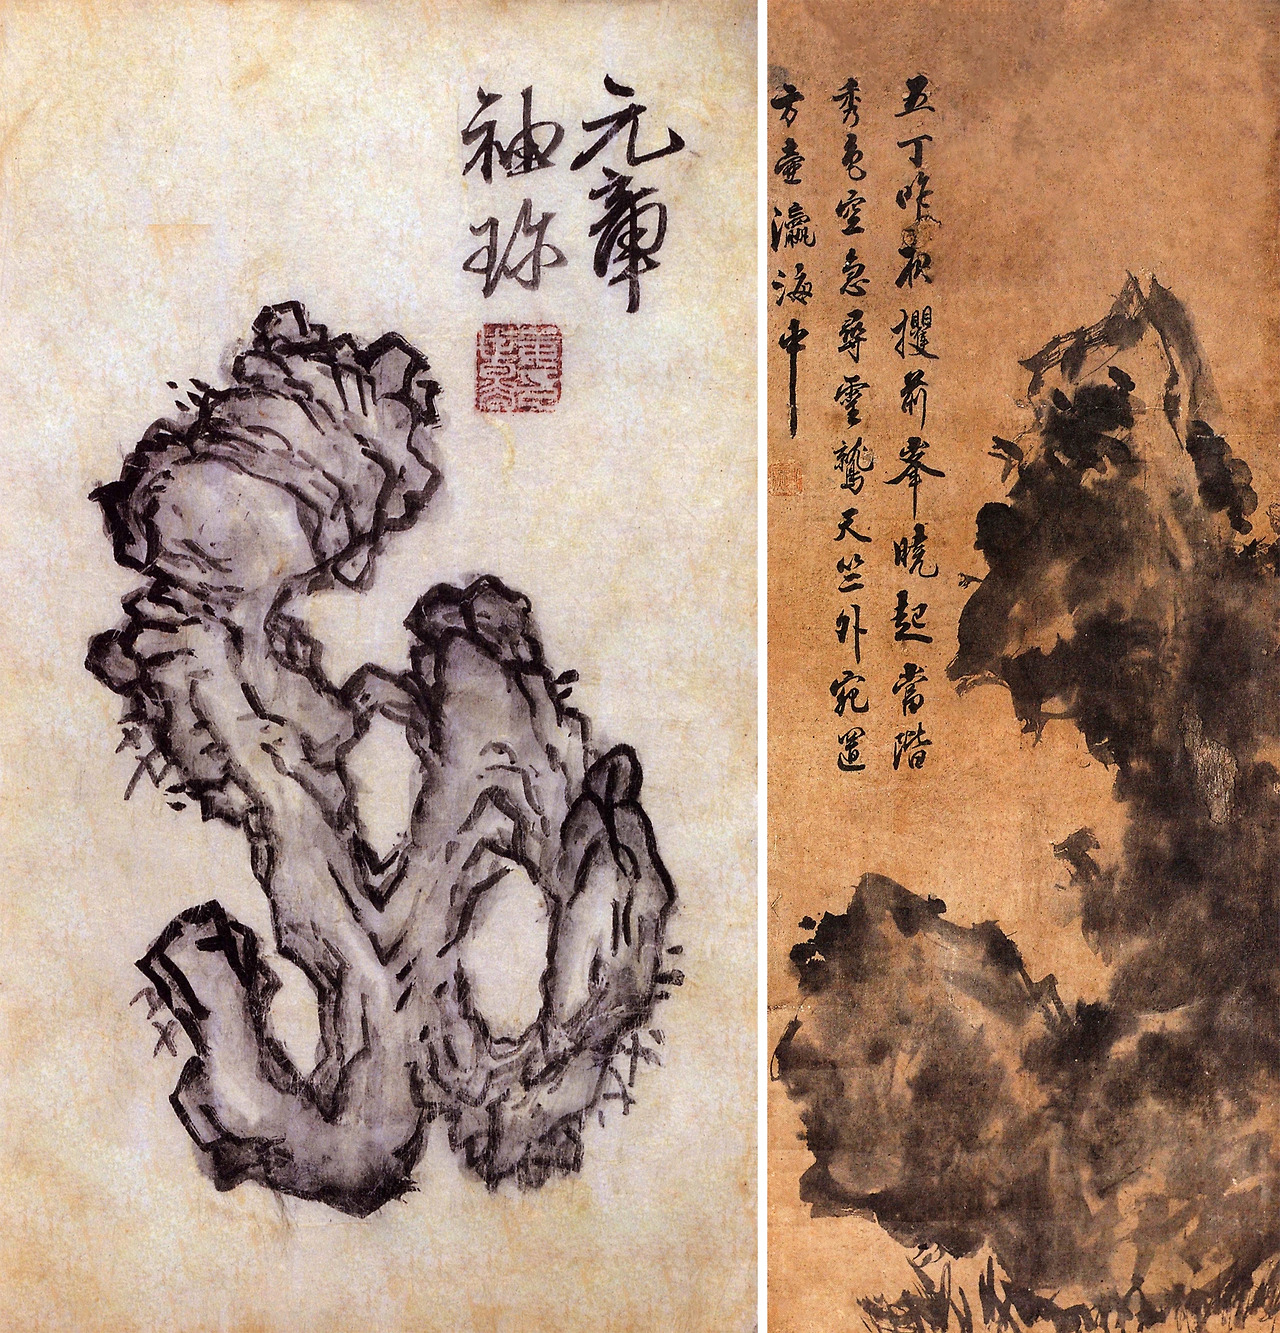 元章
袖珍
五丁昨夜攫前峯曉起當階
秀色空急尋靈鷲天竺外宛置
方壺瀛海中